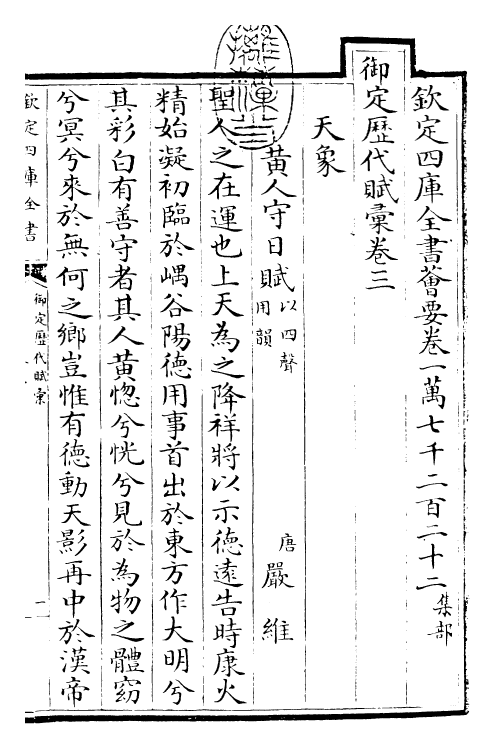 欽定四庫全書薈要卷一萬七千二百二十二集部
御定歷代賦彙卷三
天象
黃人守日賦以四聲用韻 唐 嚴維
聖人之在運也上天為之降祥將以示德遠告時康火
精始凝初臨於嵎谷陽德用事首出於東方作大明兮
其彩白有善守者其人黃惚兮恍兮見於為物之體窈
兮冥兮來於無何之鄉豈惟有德動天影再中於漢帝
欽定四庫全書
御定歷代賦彙